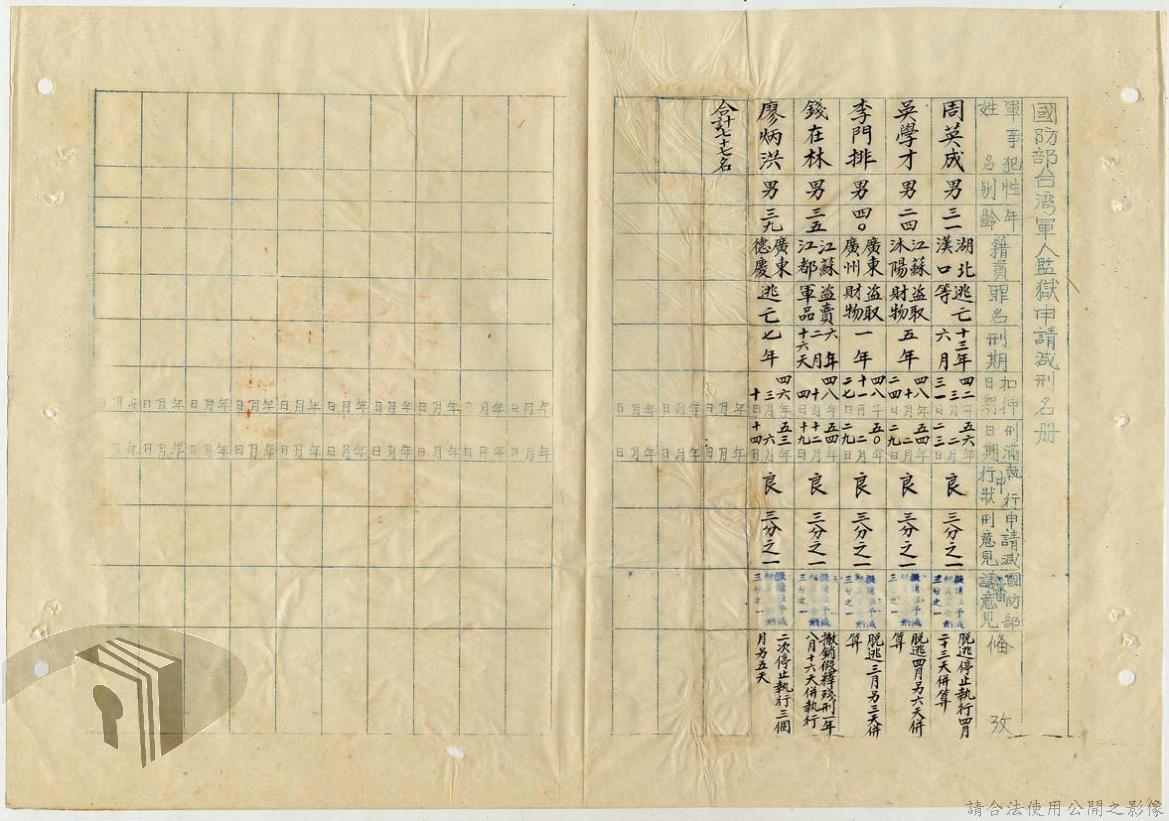 國防部台灣軍人監獄申請減刑名册
軍事犯姓名
性別
年齡
籍貫
罪名
刑期
扣押日期
刑滿日期
執行中行狀
申請減刑意見
國防部審議意見
備攷
周英成 男 三一 湖北漢口 逃亡等 十三年六月 四二年三月三一日 五六年二月二三日 良 三分之一 脫逃停止執行四月二十三天併算
吳學才 男 二四 江蘇沭陽 盜取財物 五年 四八年十月二四日 五四年二月二九日 良 三分之一 脫逃四月另六天併算
李門排 男 四〇 廣東廣州 盜取財物 一年 四八年十一月二七日 五〇年二月二九日 良 三分之一 脫逃三月另三天併算
錢在林 男 三五 江蘇江都 盜賣軍品 六年二月十六天 四八年十月四日 五四年十二月十九日 良 三分之一 撤銷假釋殘刑一年八月十六天併執行
廖炳洪 男 三九 廣東德慶 逃亡 七年 四六年三月十日 五三年六月十四日 良 三分之一 二次停止執行三個月另五天
合計七十七名
請合法使用公開之影像